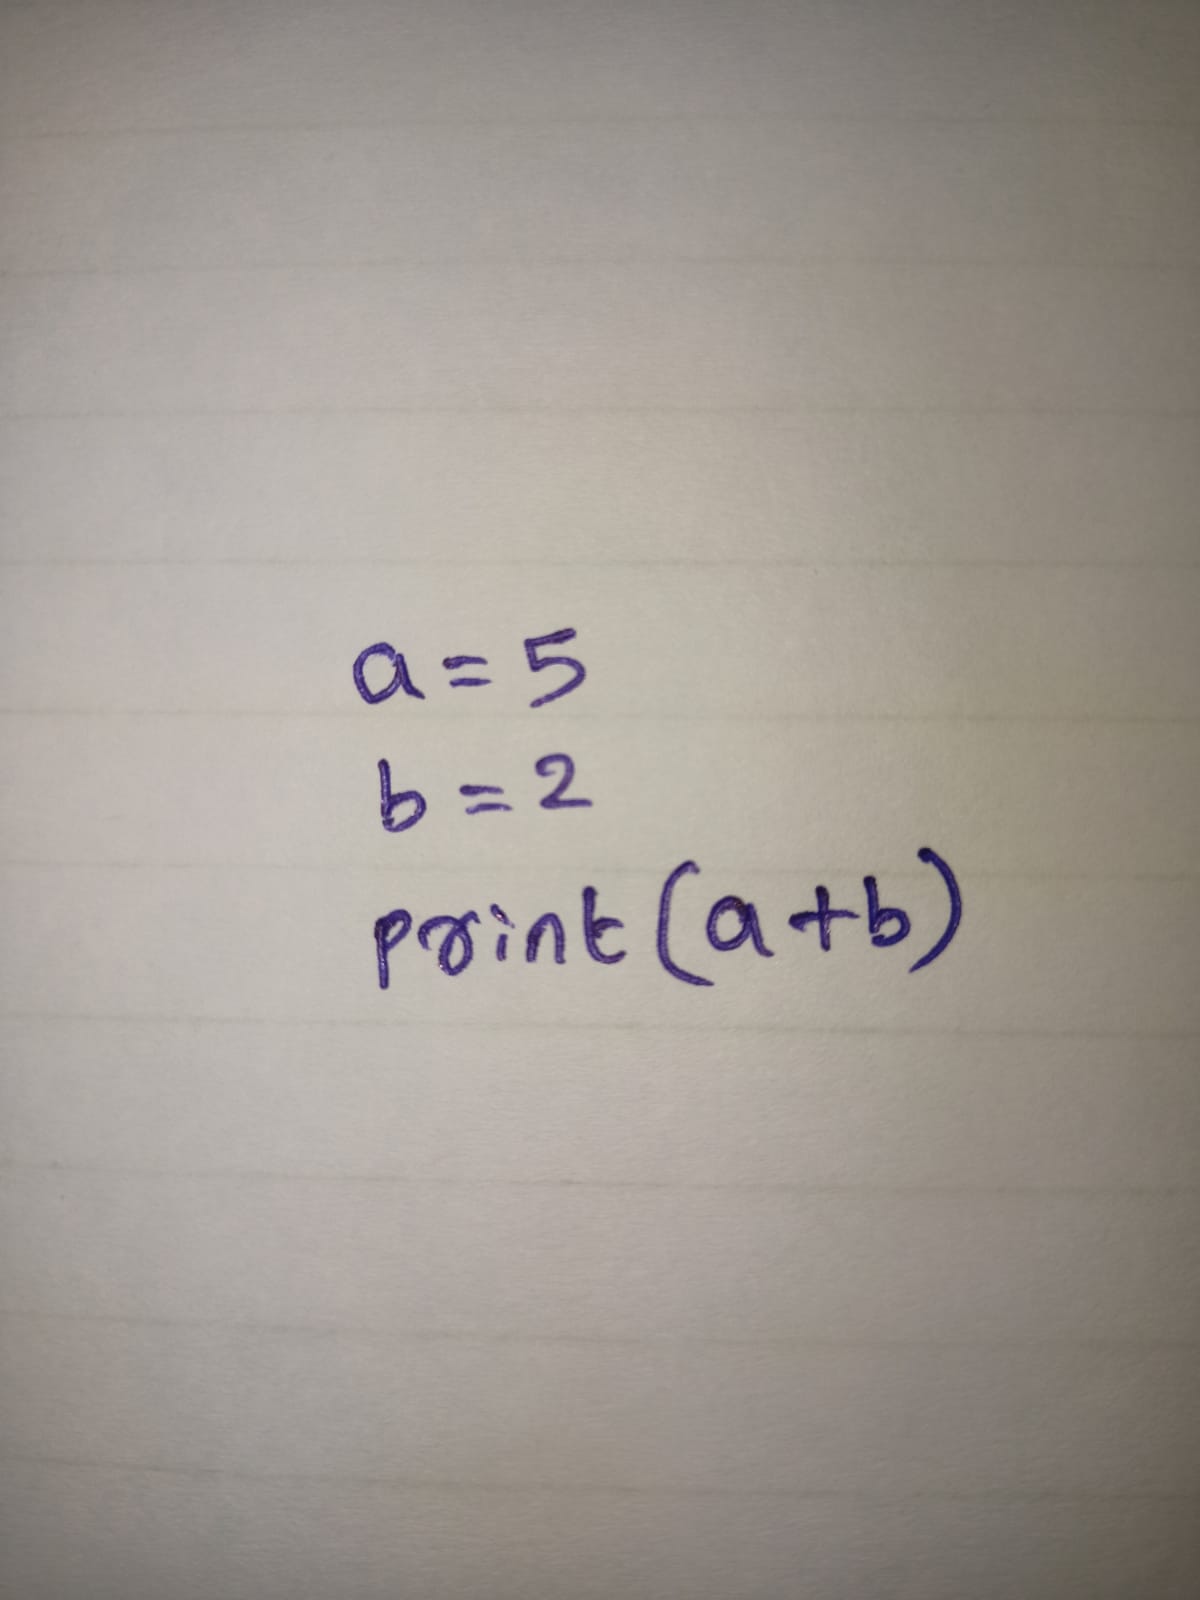 a = 5
b = 2
print(a+b)